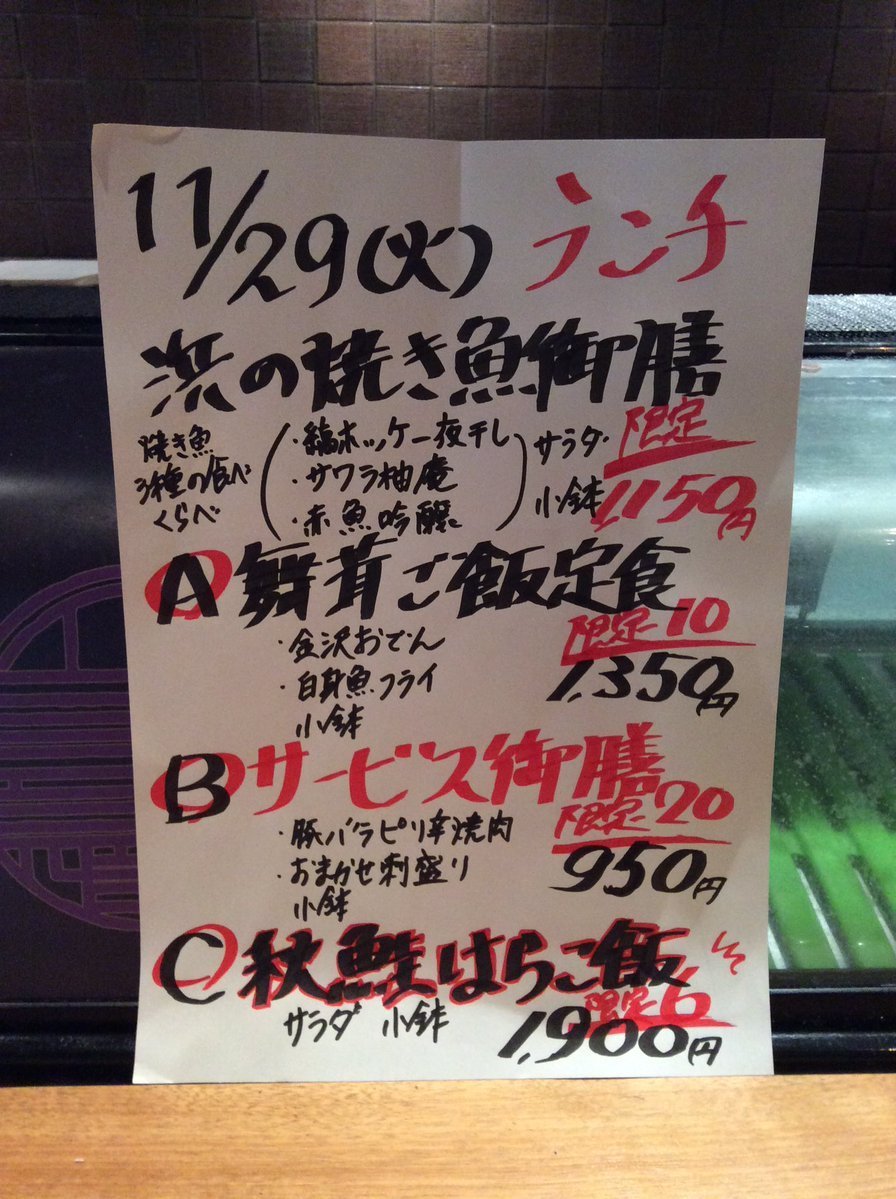 11/29(火) ランチ
浜の焼き魚御膳
焼き魚
3種の食べ
くらべ
・縞ホッケ一夜干し
・サワラ柚庵
・赤魚吟醸
サラダ
小鉢
限定
1,150円
A 舞茸ご飯定食
・金沢おでん
・白身魚フライ
小鉢
限定10
1,350円
B サービス御膳
・豚バラピリ辛焼肉
・おまかせ刺盛り
小鉢
限定20
950円
C 秋鮭はらこ飯
サラダ 小鉢
限定6
1,900円